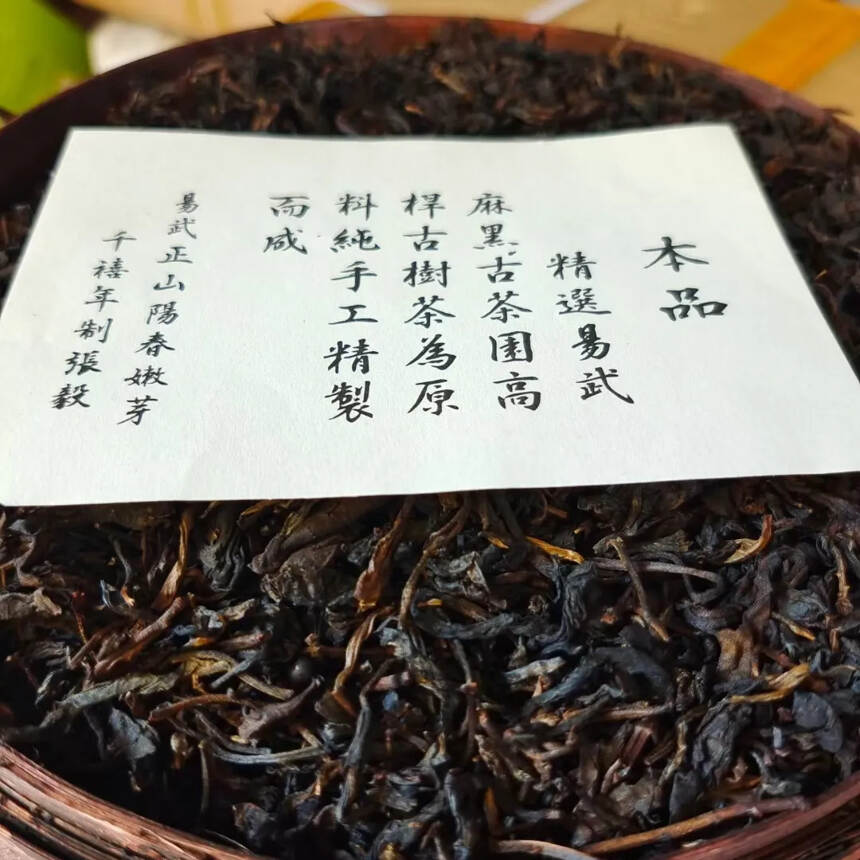 本品
精選易武
麻黑古茶園高
桿古樹茶為原
料純手工精製
而成
易武正山陽春嫩芽
千禧年制張毅